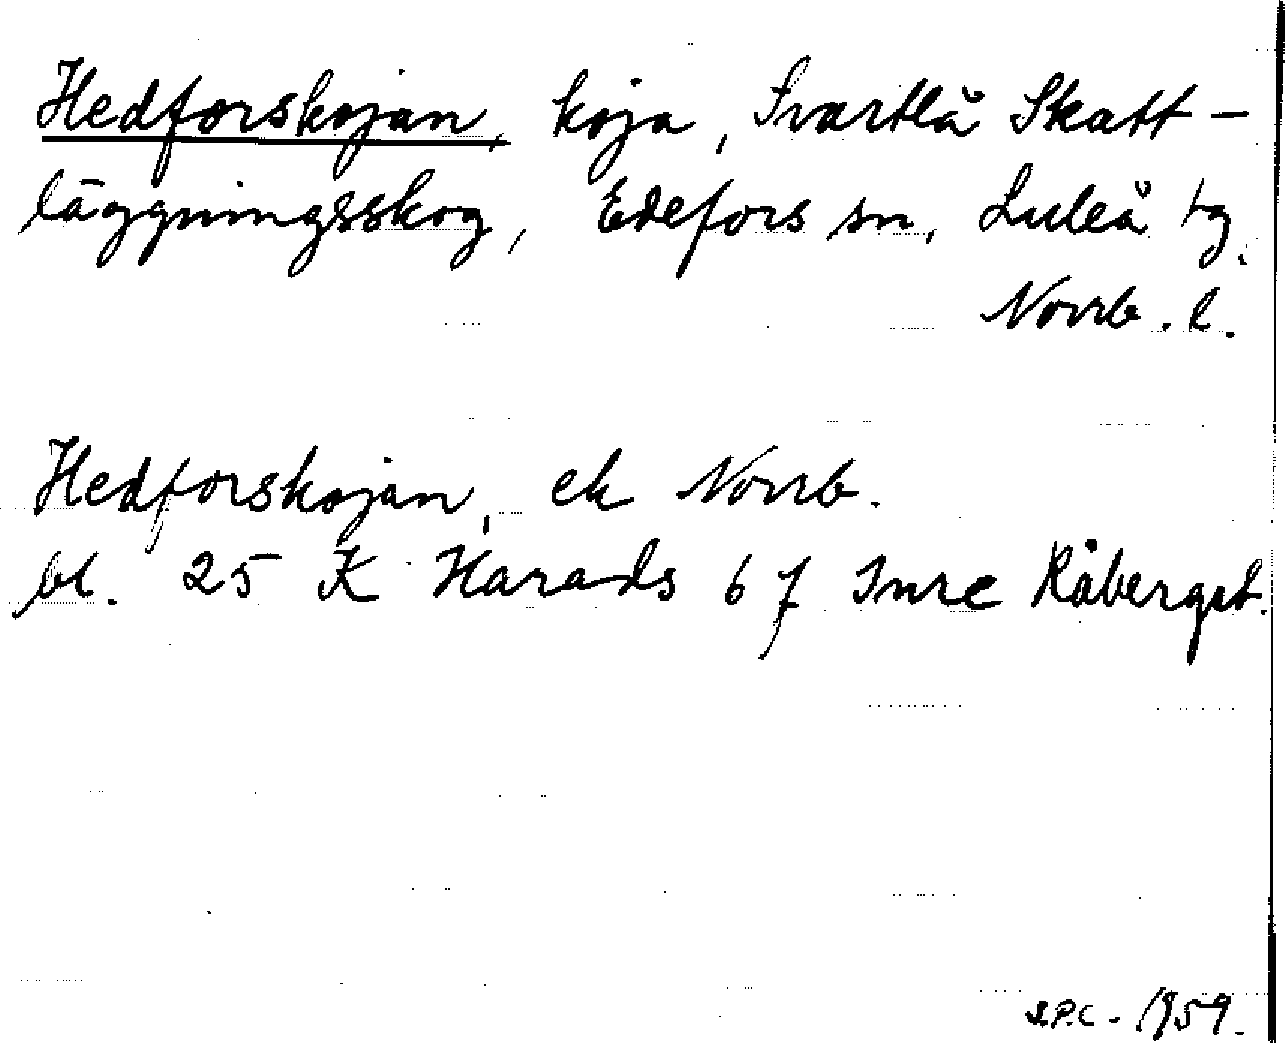 Hedforskojan, koja, Svartlå Skatt-
läggningsskog, Edefors sn, Luleå tg.
Norrb. l.
Hedforskojan, ek Norrb.
bl. 25 K Harads 6 f Inre Råbergst.
S.P.C. - 1959.